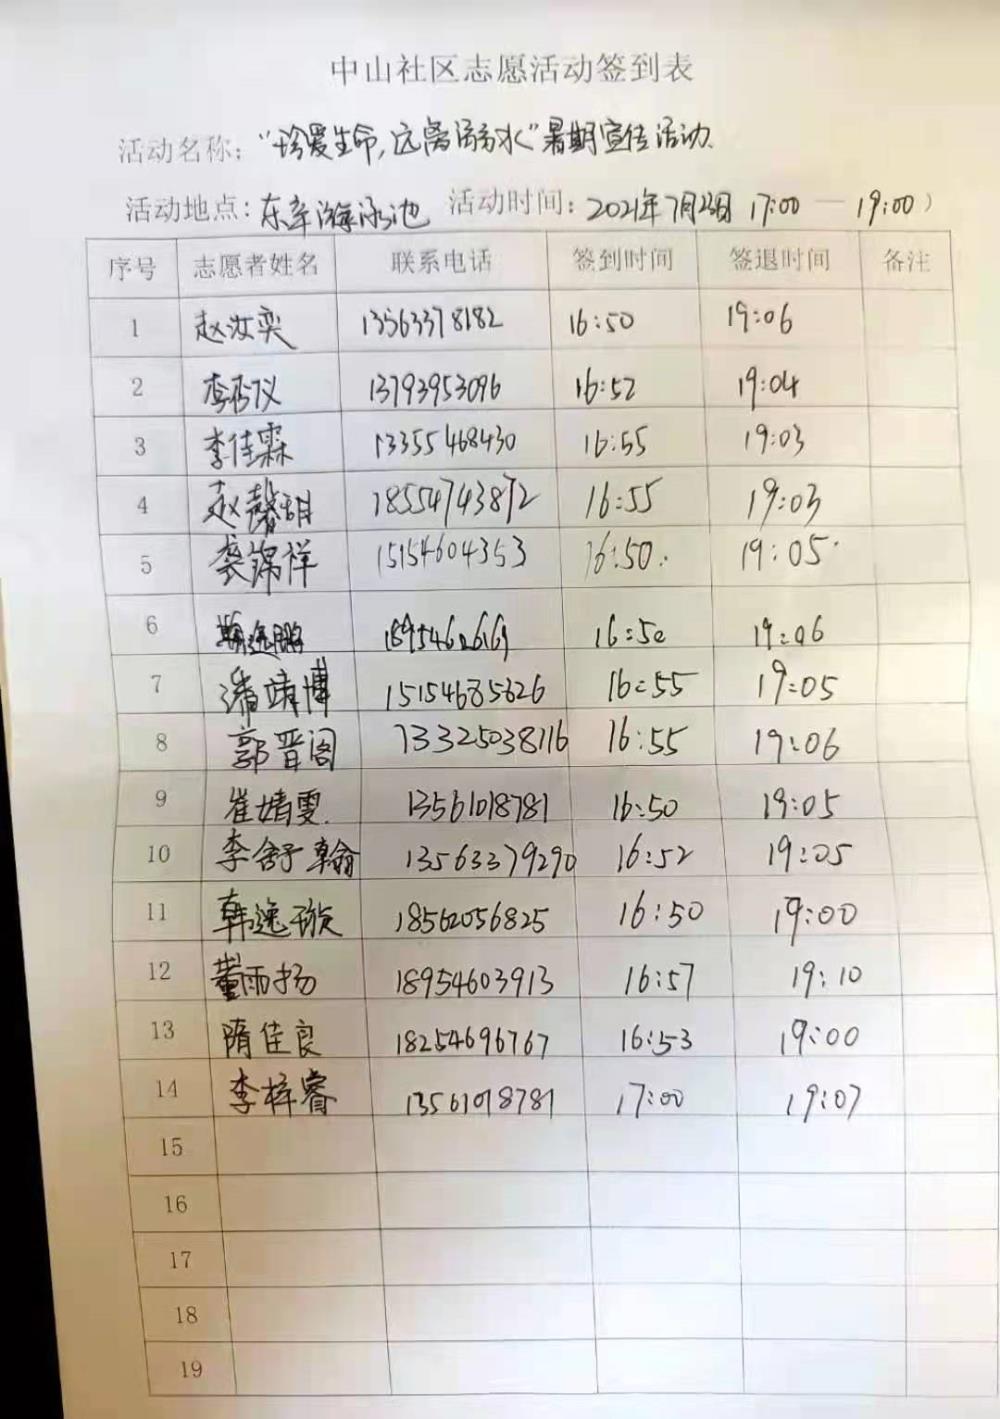 中山社区志愿活动签到表
活动名称："珍爱生命,远离溺水"暑期宣传活动.
活动地点:东辛游泳池 活动时间:2021年7月23日 17:00 — 19:00)
序号 志愿者姓名 联系电话 签到时间 签退时间 备注
1 赵汝奕 13563378182 16:50 19:06
2 李杏仪 13793953096 16:52 19:04
3 李佳霖 13355468430 16:55 19:03
4 赵馨玥 18554743872 16:55 19:03
5 裘锦祥 15154604353 16:50. 19:05.
6 16:50 19:06
7 潘靖博 15154685626 16:55 19:05
8 郭晋阁 13325038116 16:55 19:06
9 崔婧雯. 13561018781 16:50 19:05
10 李舒翰 13563379290 16:52 19:05
11 韩逸璇 18562056825 16:50 19:00
12 董雨扬 18954603913 16:57 19:10
13 隋佳良 18254696767 16:53 19:00
14 李梓睿 13561018781 17:00 19:07
15
16
17
18
19